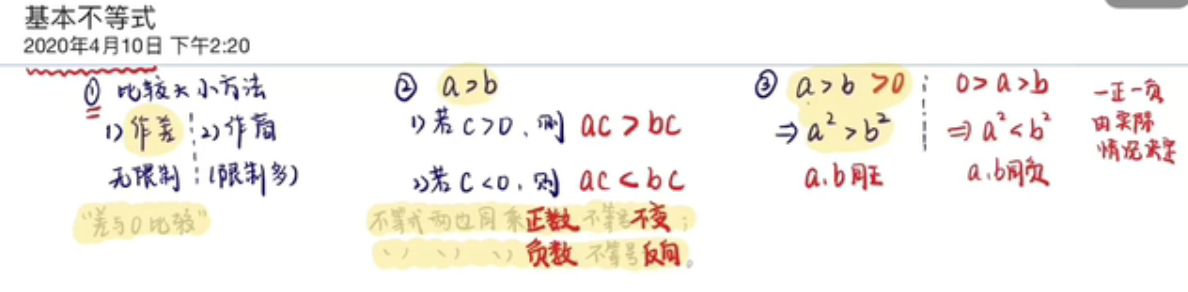 基本不等式
2020年4月10日 下午2:20
① 比较大小方法
1) 作差 2) 作商
无限制 (限制多)
"差与0比较"
② a>b
1) 若c>0,则 ac>bc
2) 若c<0,则 ac<bc
不等式两边同乘正数不等号不变;
〃 〃 〃 负数不等号反向。
③ a>b>0
⇒ a²>b²
a.b同正
0>a>b
⇒ a²<b²
a.b同负
一正一负
由实际
情况决定